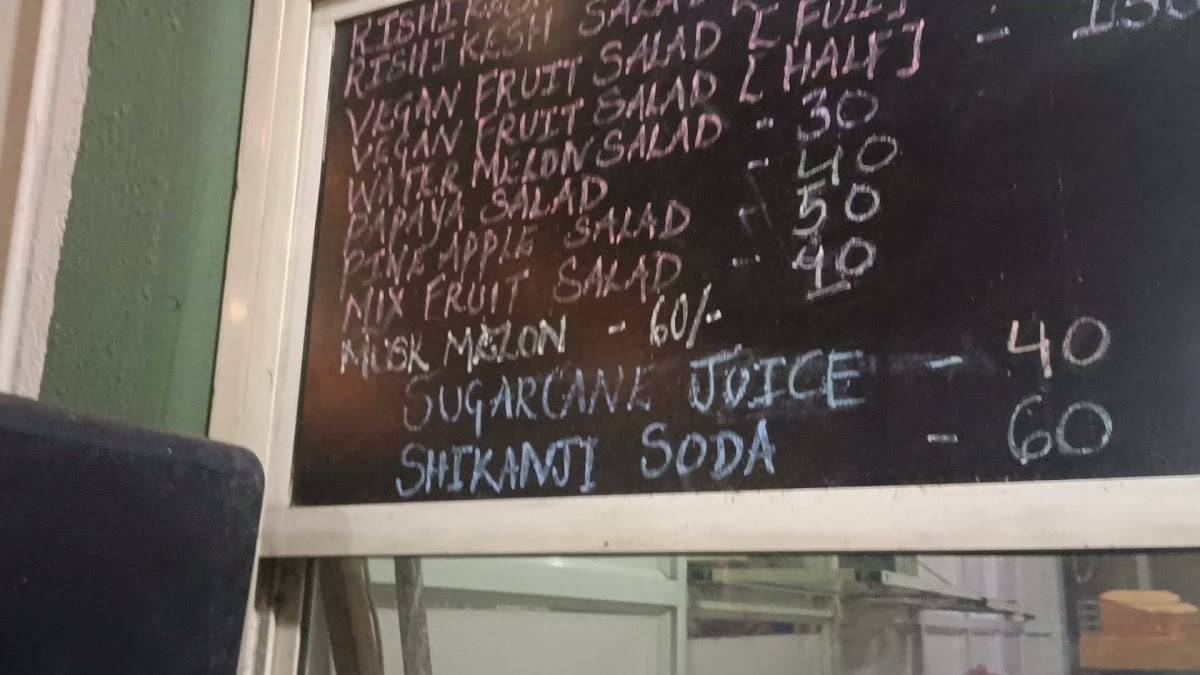 RISHIKESH SALAD
RISHIKESH SALAD [
VEGAN FRUIT SALAD [ FULL ] - 150
VEGAN FRUIT SALAD [ HALF ]
WATER MELON SALAD - 30
PAPAYA SALAD - 40
PINE APPLE SALAD - 50
MIX FRUIT SALAD - 40
MUSK MELON - 60/-
SUGARCANE JUICE - 40
SHIKANJI SODA - 60